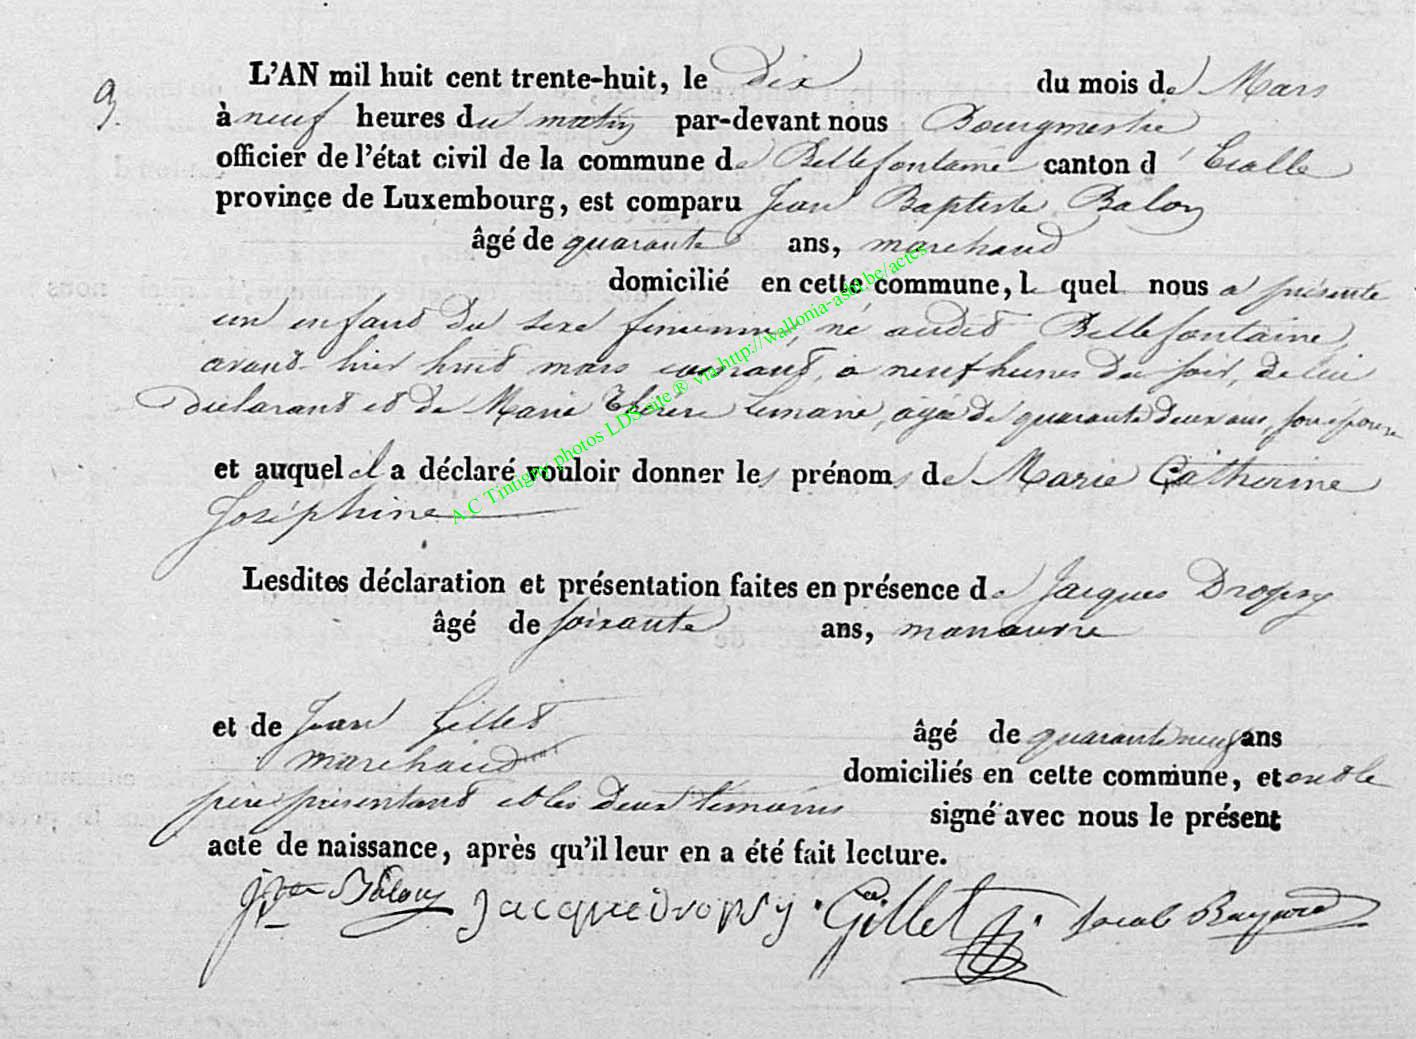 9.
L'AN mil huit cent trente-huit, le dix du mois de Mars
à neuf heures du matin par-devant nous Bourgmestre
officier de l'état civil de la commune de Bellefontaine canton d'Etalle
province de Luxembourg, est comparu Jean Baptiste Balon
âgé de quarante ans, marchand
domicilié en cette commune, le quel nous a présenté
un enfant du sexe feminin, né audit Bellefontaine,
avant-hier huit mars courant, à neuf heures du soir, de lui
déclarant et de Marie Thérèse Lemaire, agée de quarante deux ans, son epouse
et auquel il a déclaré vouloir donner les prénoms de Marie Catherine
Joséphine
Lesdites déclaration et présentation faites en présence de Jacques Dropsy
âgé de soixante ans, manoeuvre
et de Jean Gillet âgé de quarante neuf ans
marchand domiciliés en cette commune, et ont le
père présentant et les deux témoins signé avec nous le présent
acte de naissance, après qu'il leur en a été fait lecture.
Balon Jacque Dropsy Gillet Jacob
A.C Tintigny photos LDS site ® via http://wallonia-asbl.be/actes